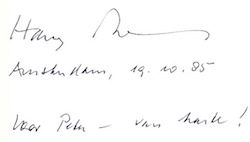 Harry
Amsterdam, 19.10.85
Voor Peter – van harte!